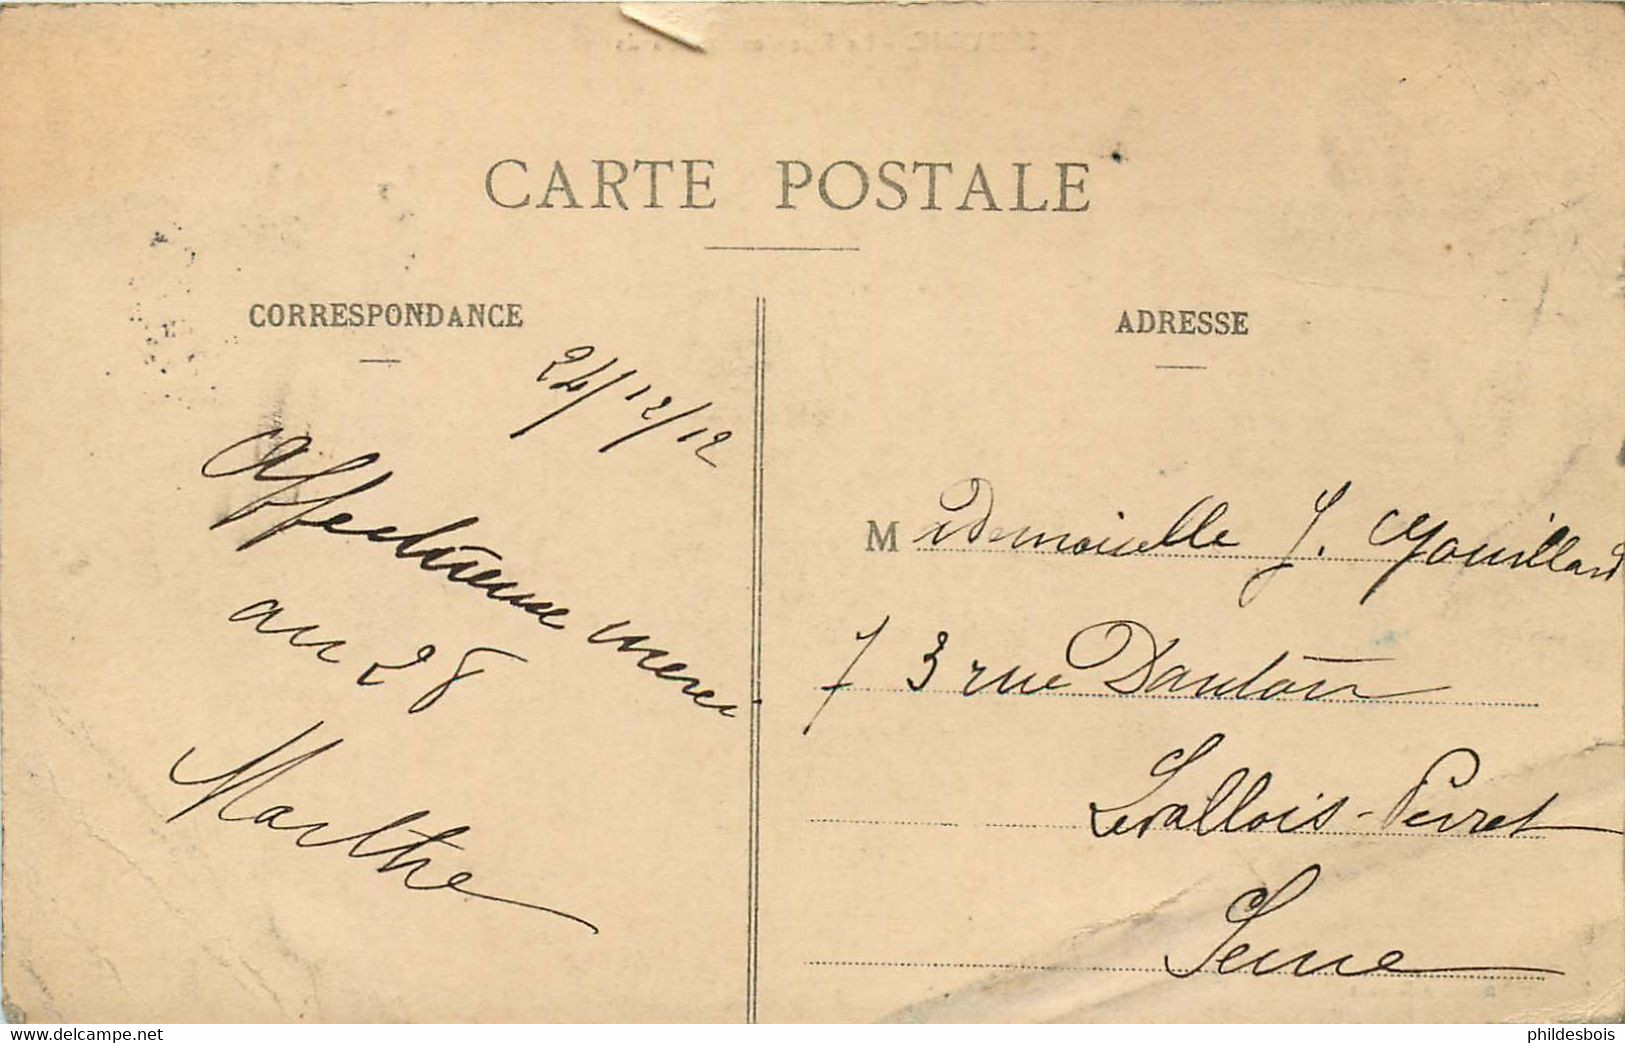 CARTE POSTALE
CORRESPONDANCE
24/12/12
Affectueux merci
au 28
Marthe
ADRESSE
Mademoiselle J. Mouillard
73 rue Danton
Levallois-Perret
Seine
www.delcampe.net
phildesbois